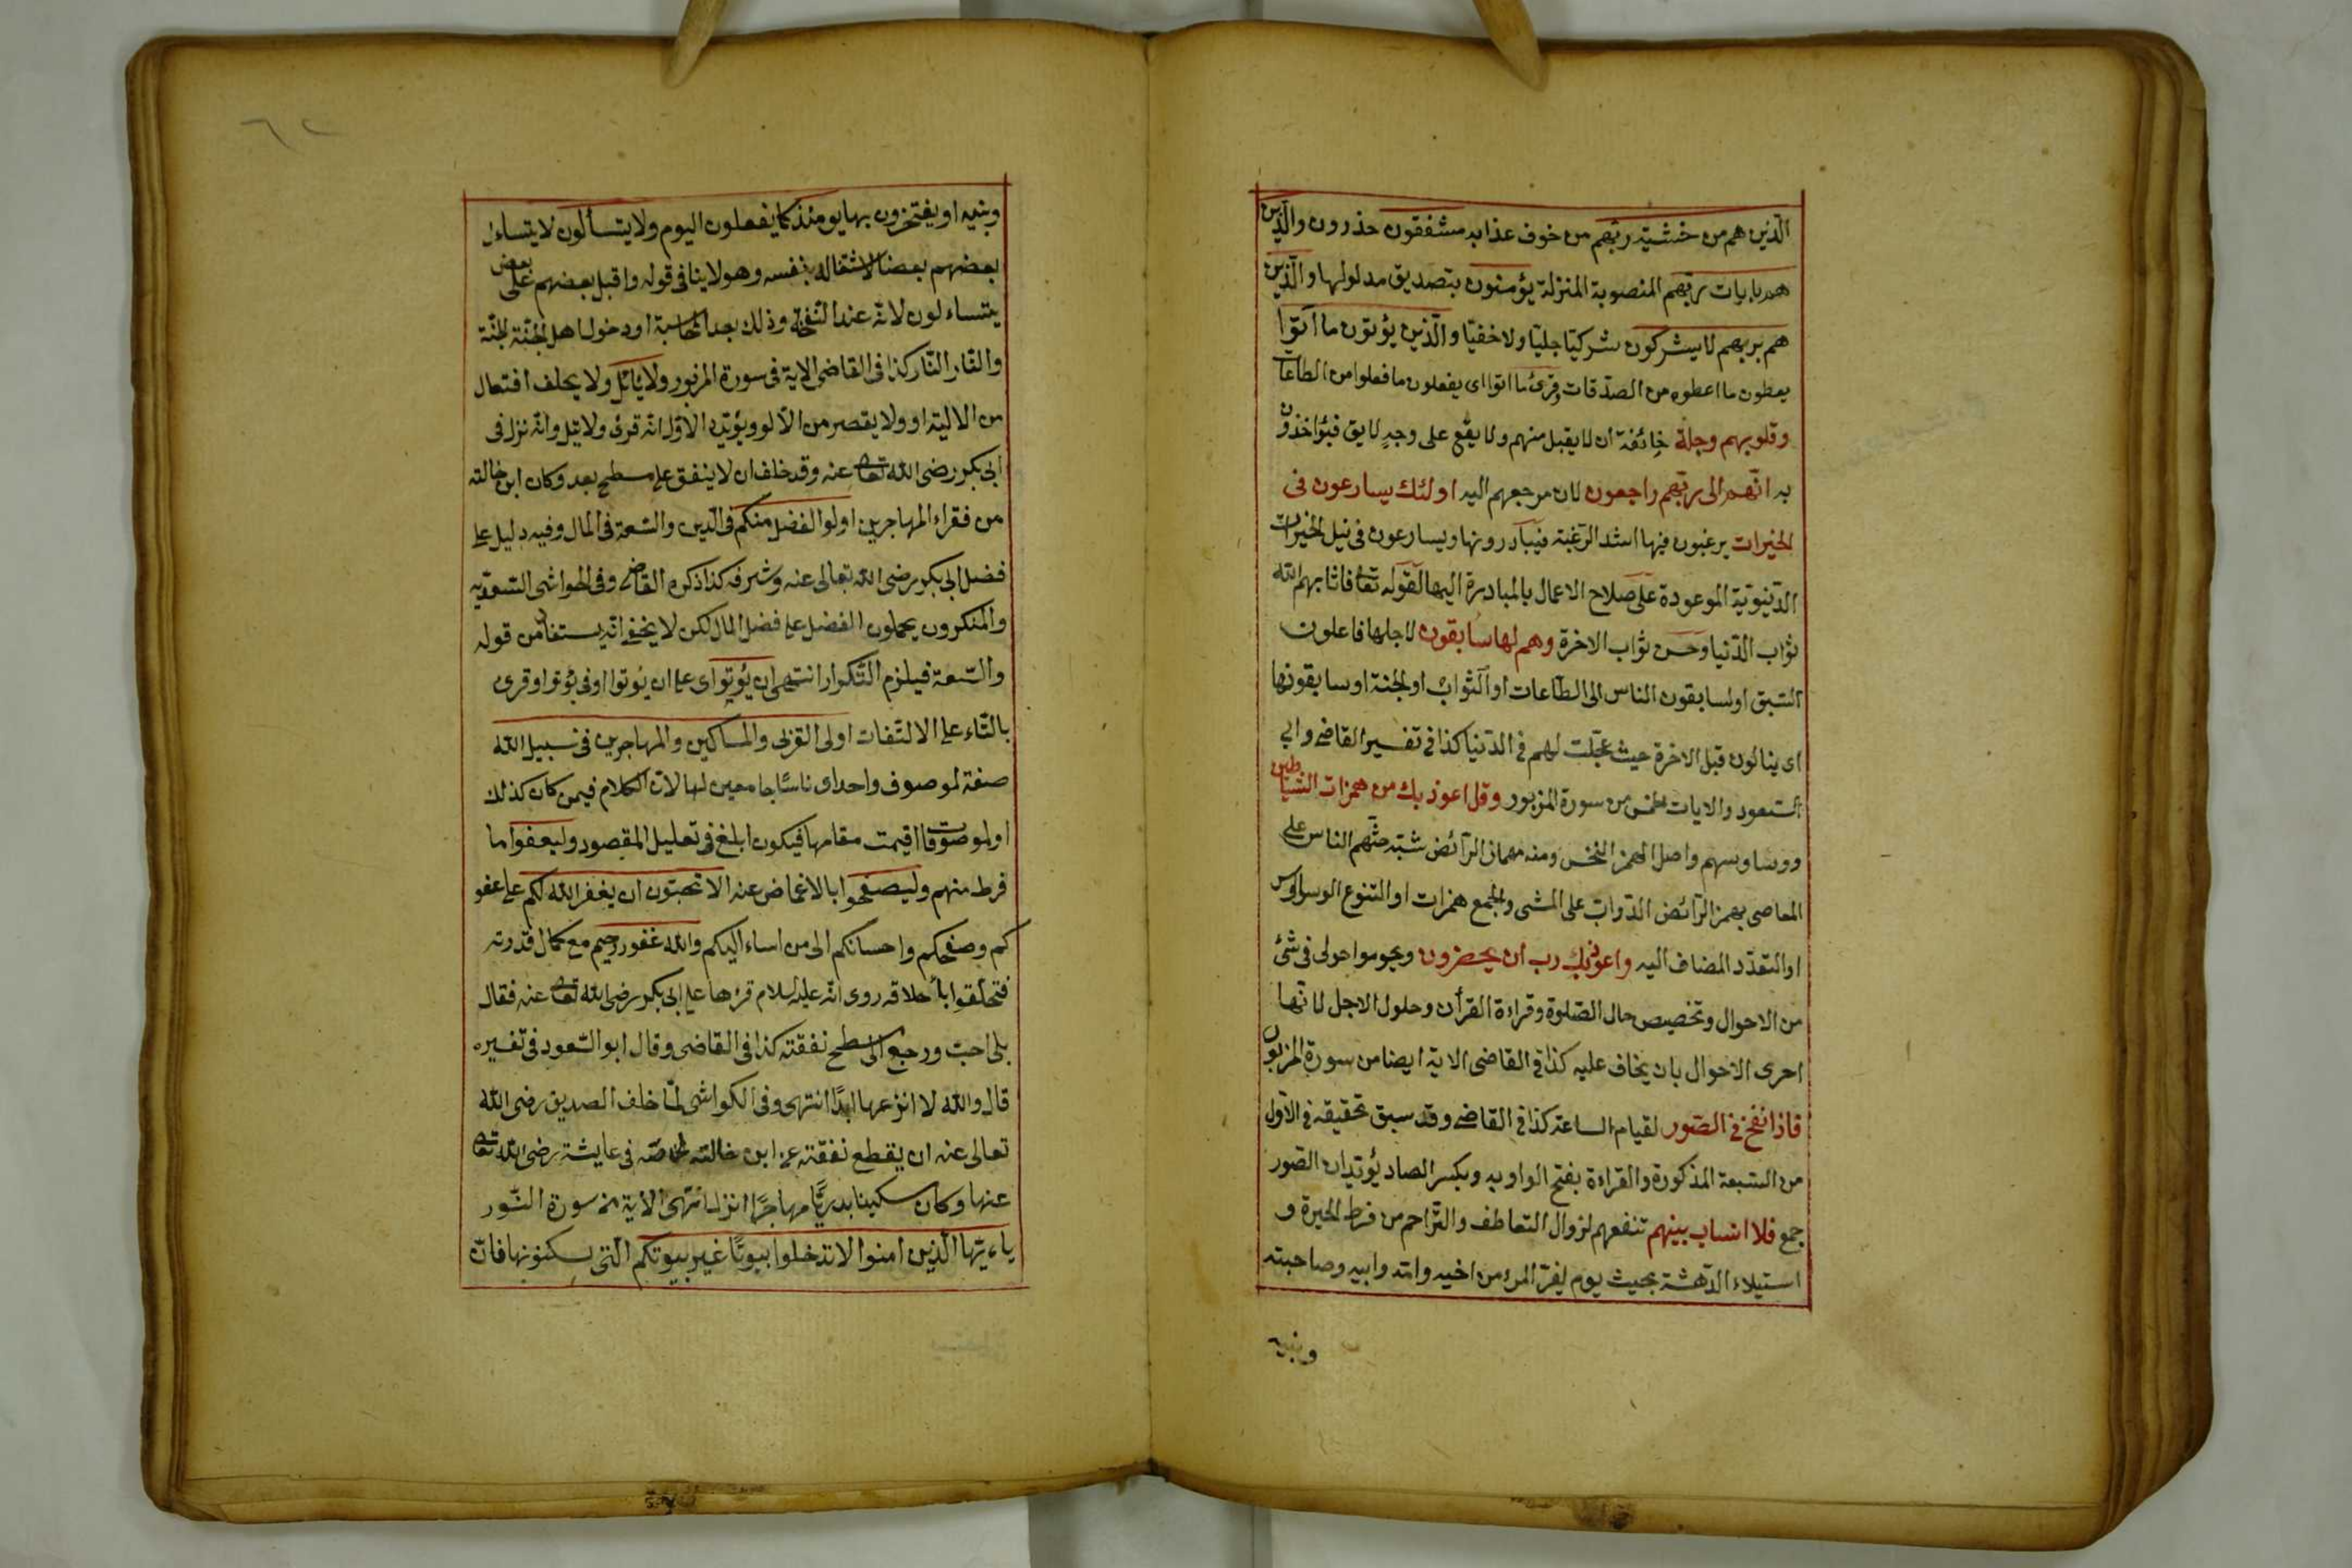 الذين هم من خشية ربهم من خوف عذابه مشفقون حذرون والذين
هم بايات ربهم المنصوبة المنزلة يؤمنون بتصديق مدلولها والذين
هم بربهم لا يشركون شركا جليا ولا خفيا والذين يؤتون ما آتوا
يعطون ما اعطوه من الصدقات وقرئ ما اتوا اى يفعلون ما فعلوا من الطاعات
وقلوبهم وجلة خائفة ان لا يقبل منهم ولا يقع على وجه لايق فيؤاخذون
به انهم الى ربهم راجعون لان مرجعهم اليه اولئك يسارعون فى
الخيرات يرغبون فيها اشد الرغبة فيبادرونها ويسارعون فى نيل الخيرات
الدنيوية الموعودة على صلاح الاعمال بالمبادرة اليها لقوله تعا فاتابهم الله
ثواب الدنيا وحسن ثواب الاخرة وهم لها سابقون لاجلها فاعلون
السبق او لسابقون الناس الى الطاعات او الثواب او الجنة او سابقونها
اى ينالون قبل الاخرة حيث عجلت لهم فى الدنيا كذا فى تفسير القاضى وابى
السعود والايات الخمس من سورة المزبور وقل اعوذ بك من همزات الشياطين
ووساوسهم واصل الهمز النخس ومنه مهماز الرائض شبه حثهم الناس على
المعاصى بهمز الرائض الدواب على المشى والجمع همزات او التنوع الوساوس
او التعدد المضاف اليه واعوذ بك رب ان يحضرون ويحوموا حولى فى شئ
من الاحوال وتخصيص حال الصلوة وقراءة القرأن وحلول الاجل لانها
احرى الاحوال بان يخاف عليه كذا فى القاضى الاية ايضا من سورة المزبور
فاذا نفخ فى الصور لقيام الساعة كذا فى القاضى وقد سبق تحقيقه فى الاول
من السبعة المذكورة والقراءة بفتح الواو به وبكسر الصاد يؤيد ان الصور
جمع فلا انساب بينهم تنفعهم لزوال التعاطف والتراحم من فرط الحيرة و
استيلاء الدهشة بحيث يوم يفر المرء من اخيه وامه وابيه وصاحبته
وبنيه
٦٢
وبنيه او يفتخرون بها يومئذ كما يفعلون اليوم ولا يتسألون لا يتساءل
بعضهم بعضا لاشتغاله بنفسه وهو لا ينافى قوله واقبل بعضهم على بعض
يتساءلون لانه عند النفخة وذلك بعد المحاسبة او دخول اهل الجنة الجنة
والنار النار كذا فى القاضى الاية فى سورة المزبور ولا يأتل ولا يحلف افتعال
من الالية او ولا يقصر من الالو ويؤيد الاول انه قرئ ولا يتل وانه نزل فى
ابى بكر رضى الله تعا عنه وقد خلف ان لا ينفق على مسطح بعد وكان ابن خالته
من فقراء المهاجرين اولوا الفضل منكم فى الدين والسعة فى المال وفيه دليل على
فضل ابى بكر رضى الله تعالى عنه وشرفه كذا ذكره القاضى وفى الحواشى السعديه
والمنكرون يحملون الفضل على فضل المال لكن لا يخفى انه يستفاد من قوله
والسعة فيلزم التكرار انتهى ان يؤتوا اى على ان يؤتوا او فى يؤتوا وقرى
بالتاء على الالتفات اولى القربى والمساكين والمهاجرين فى سبيل الله
صفة لموصوف واحد اى ناسا جامعين لها لان الكلام فيمن كان كذلك
او لموصوفات اقيمت مقامها فيكون ابلغ فى تعليل المقصود وليعفوا ما
فرط منهم وليصفحوا بالاغماض عنه الا تحبون ان يغفر الله لكم على عفو
كم وصفحكم واحسانكم الى من اساء اليكم والله غفور رحيم مع كمال قدرته
فتخلقوا بأخلاقه روى انه عليه السلام قرءها على ابى بكر رضى الله تعا عنه فقال
بلى احب ورجع الى مسطح نفقته كذا فى القاضى وقال ابو السعود فى تفسيره
قال والله لا انزعها ابدا انتهى وفى الكواشى لما خلف الصديق رضى الله
تعالى عنه ان يقطع نفقته عن ابن خالته لخاضه فى عايشة رضى الله تعا
عنها وكان سكينا بدريا مهاجرا انزل انتهى الاية من سورة النور
ياءيها الذين امنوا لا تدخلوا بيوتا غير بيوتكم التى تسكنونها فان